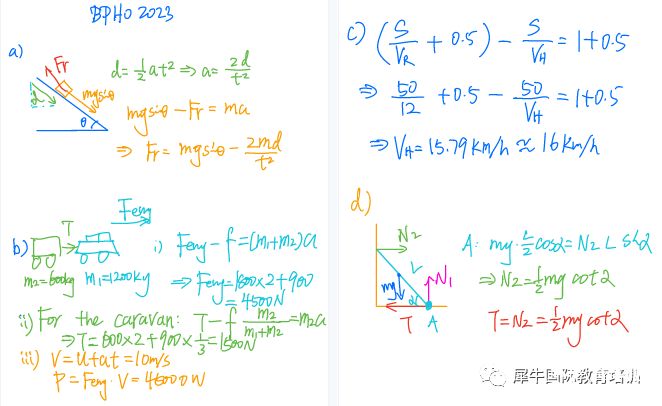 BPHO 2023
a)
Fr
mgsinθ
d
θ
d = ½at² ⇒ a = 2d/t²
mgsinθ − Fr = ma
⇒ Fr = mgsinθ − 2md/t²
b)
T
Feng
m₂=600kg m₁=1200kg
i) Feng − f = (m₁+m₂)a
⇒ Feng = 1800×2+900
= 4500N
ii) For the caravan: T − f m₂/(m₁+m₂) = m₂a
⇒ T = 600×2+900×⅓ = 1500N
iii) V = u+at = 10m/s
P = Feng · V = 45000W
c) (S/V_R + 0.5) − S/V_H = 1+0.5
⇒ 50/12 + 0.5 − 50/V_H = 1+0.5
⇒ V_H = 15.79 km/h ≈ 16 km/h
d)
N₂
L
mg
N₁
α
T
A
A: mg·L/2 cosα = N₂ L sinα
⇒ N₂ = ½mg cotα
T = N₂ = ½mg cotα
犀牛国际教育培训